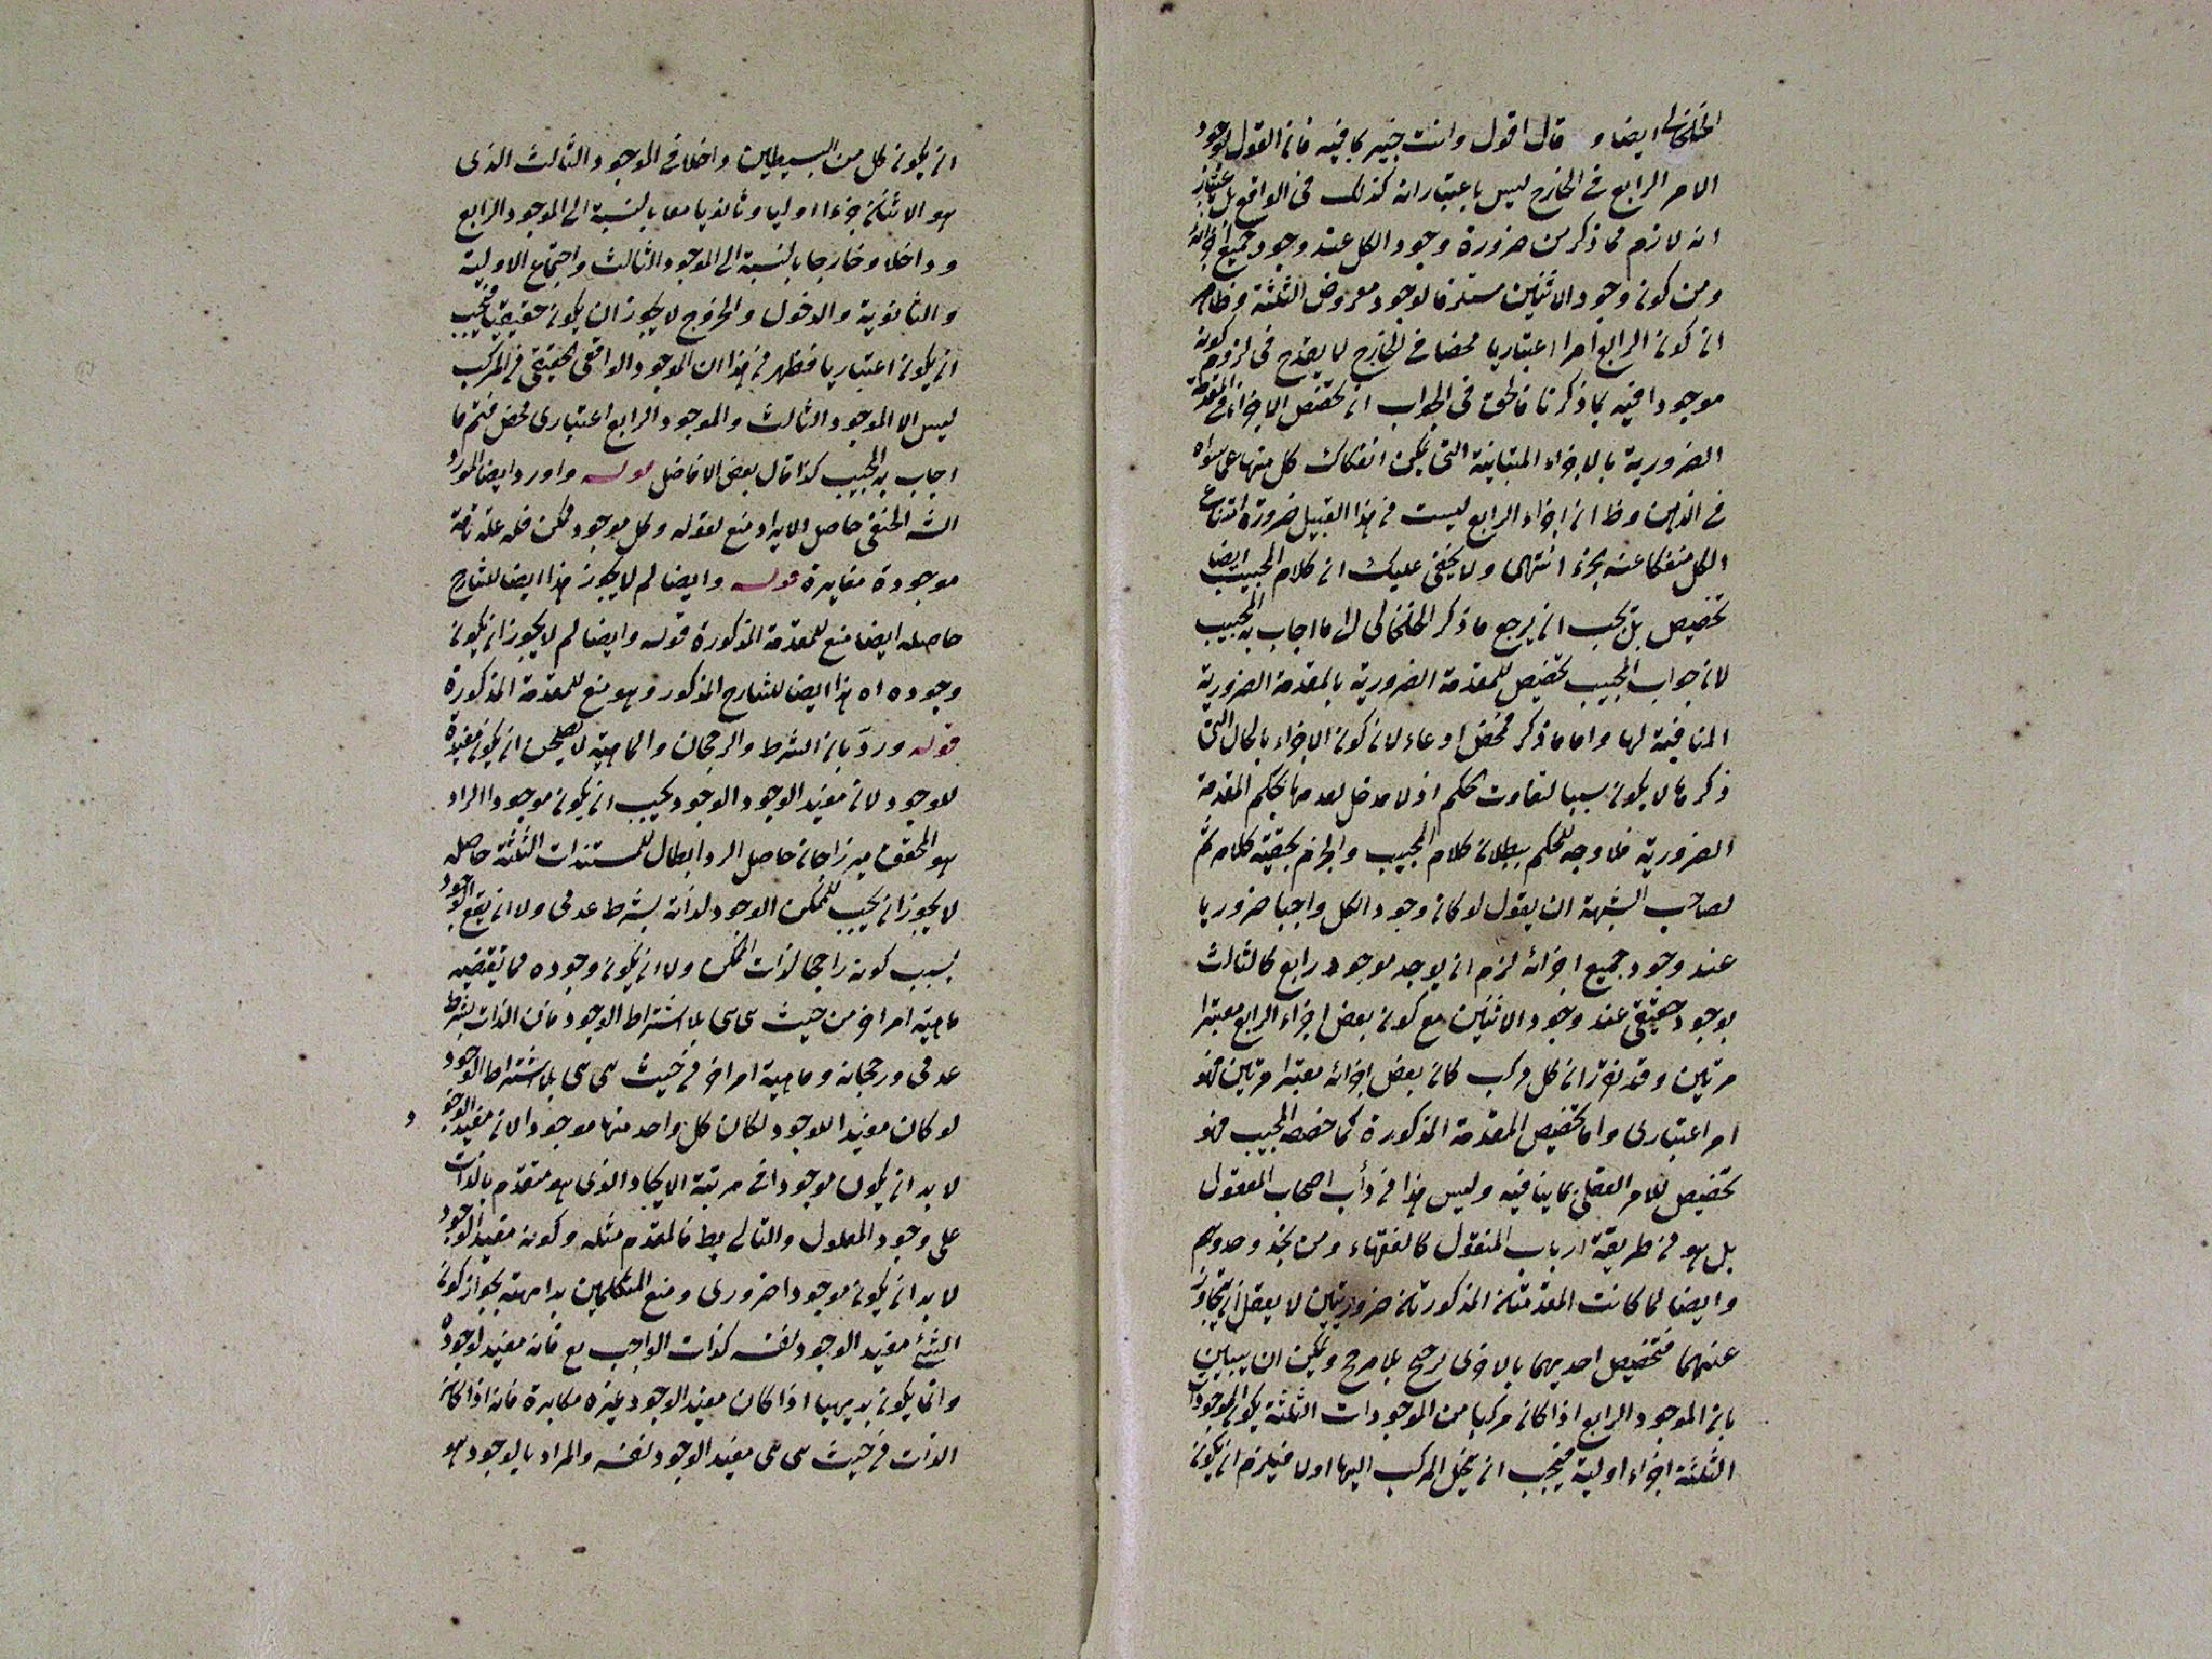 الخلخالى ايضا و قال اقول وانت خبير بما فيه فان القول بوجود
الامر الرابع فى الخارج ليس باعتبار انه كذلك فى الواقع بل باعتبار
انه لازم مما ذكر من ضرورة وجود الكل عند وجود جميع اجزائه
ومن كون وجود الاثنين مستلزما لوجود معروض الثلثة وظاهر
ان كون الرابع امرا اعتباريا محضا فى الخارج لا يقدح فى لزوم كونه
موجودا فيه بما ذكرنا فالحق فى الجواب ان تخصص الاجزاء فى المقدمة
الضرورية بالاجزاء المتباينة التى يمكن انفكاك كل منها عما سواه
فى الذهن وظ ان اجزاء الرابع ليست من هذا القبيل ضرورة امتناع
الكل منفكا عنه بجزء انتهى ولا يخفى عليك ان كلام المجيب ايضا
تخصيص بل يجب ان يرجع ما ذكر الخلخالى الى ما اجاب به المجيب
لان جواب المجيب تخصيص للمقدمة الضرورية بالمقدمة الضرورية
المنافية لها واما ما ذكر فمحض ادعاء لان كون الاجزاء بالحال التى
ذكرها لا يكون سببا لتفاوت الحكم اذ لا مدخل لعدمها بحكم المقدمة
الضرورية فلا وجه للحكم ببطلان كلام المجيب والجزم بحقية كلامه ثم
لصاحب الشبهة ان يقول لو كان وجود الكل واجبا ضروريا
عند وجود جميع اجزائه لزم ان يوجد موجود رابع كالثالث
بوجود حقيقى عند وجود الاثنين مع كون بعض اجزاء الرابع معتبرا
مرتين وقد تقرر ان كل مركب كان بعض اجزائه معتبرا مرتين فهو
امر اعتبارى واما تخصيص المقدمة المذكورة كما خصصه المجيب فهو
تخصيص للامر العقلى بما ينافيه وليس هذا من دأب اصحاب المعقول
بل هو من طريقة ارباب المنقول كالفقهاء ومن يحذو حذوهم
وايضا لما كانت المقدمتان المذكورتان ضروريتين لا يعقل ان يتجاوز
عنهما فتخصيص احديهما بالاخرى ترجيح بلا مرجح ويمكن ان يبين
بان الموجود الرابع اذا كان مركبا من الموجودات الثلثة يكون الموجودات
الثلثة اجزاء اولية فيجب ان ينحل المركب اليها اولا فيلزم ان يكون
ان يكون كل من البسيطين داخلا فى الموجود الثالث الذى
هو الاثنان جزءا اوليا وثانويا معا بالنسبة الى الموجود الرابع
وداخلا وخارجا بالنسبة الى الموجود الثالث واجتماع الاولية
والثانوية والدخول والخروج لا يجوز ان يكون حقيقيا فيجب
ان يكون اعتباريا فظهر من هذا ان الموجود الواقعى الحقيقى فى المركب
ليس الا الموجود الثالث والموجود الرابع اعتبارى محض فتم ما
اجاب به المجيب كذا قال بعض الافاضل قوله واورد ايضا المورد
الشه الحنفى حاصل الايراد منع لقوله وكل موجود ممكن فله علة تامة
موجودة مغايرة قوله وايضا لم لا يجوز هذا ايضا للشارح
حاصله ايضا منع للمقدمة المذكورة قوله وايضا لم لا يجوز ان يكون
وجوده اه هذا ايضا للشارح المذكور وهو منع للمقدمة المذكورة
قوله وردّ بان الشرط والرجحان والماهية لا يصلحن ان يكون مفيدة
للوجود لان مفيد الوجود الوجود يجب ان يكون موجودا الراد
هو المحقق ميرزاجان حاصل الرد ابطال للمستندات الثلثة حاصله
لا يجوز ان يجب للممكن الوجود لذاته بشرط عدمى ولا ان يقع الوجود
بسبب كونه راجحا لذات الممكن ولا ان يكون وجوده مما تقتضيه
ماهية امر اخر من حيث هى هى بلا اشتراط الوجود فان الذات بشرط
عدمى ورجحانه وماهية امر اخر من حيث هى هى بلا اشتراط الوجود
لو كان مفيدا للوجود لكان كل واحد منها موجودا لان مفيد الوجود
لا بد ان يكون موجودا فى مرتبة الايجاد الذى هو متقدم بالذات
على وجود المعلول والتالى بط فالمقدم مثله وكونه مفيد الوجود
لا بد ان يكون موجودا ضرورى ومنع المتكلمين بداهته بجواز كون
الشئ مفيد الوجود لنفسه كذات الواجب مع فانه مفيد لوجوده
وانما يكون بديهيا اذا كان مفيد الوجود غيره مكابرة فانه اذا كان
الذات من حيث هى هى مفيد الوجود لنفسه والمراد بالوجود هو